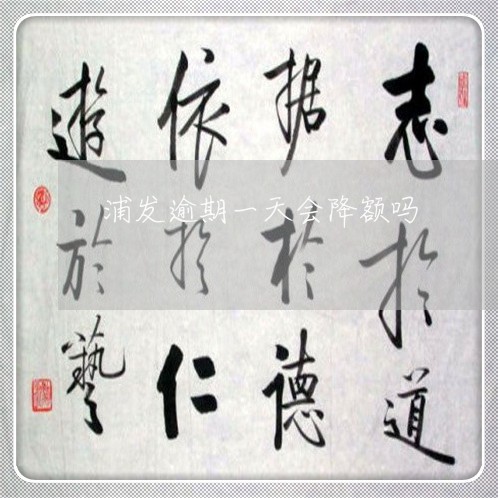 志於道
据於德
依於仁
遊於藝
浦发逾期一天会降额吗